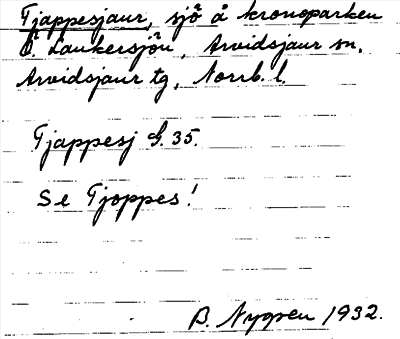 Tjappesjaur, sjö å kronoparken
Ö. Laukersjön, Arvidsjaur sn,
Arvidsjaur tg, Norrb. l.
Tjappesj G. 35.
Se Tjoppes!
B. Nygren 1932.